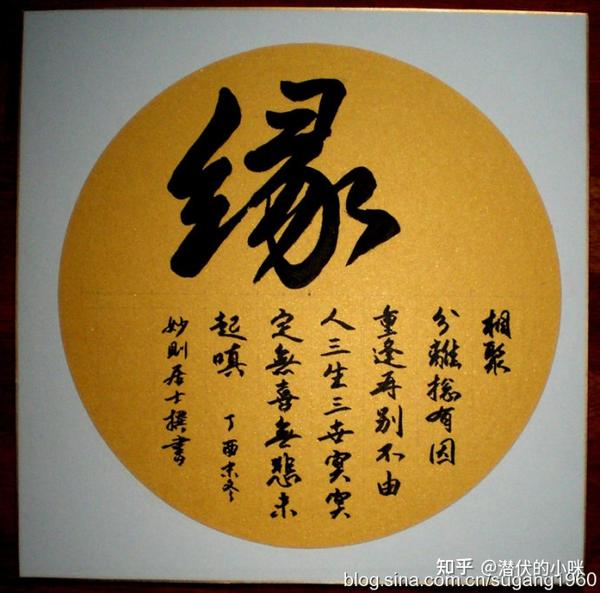 缘
相聚
分離總有因
重逢再别不由
人三生三世冥冥
定無喜無悲未
起嗔
丁酉末冬
妙則居士撰書
知乎 @潜伏的小咪
blog.sina.com.cn/sugang1960